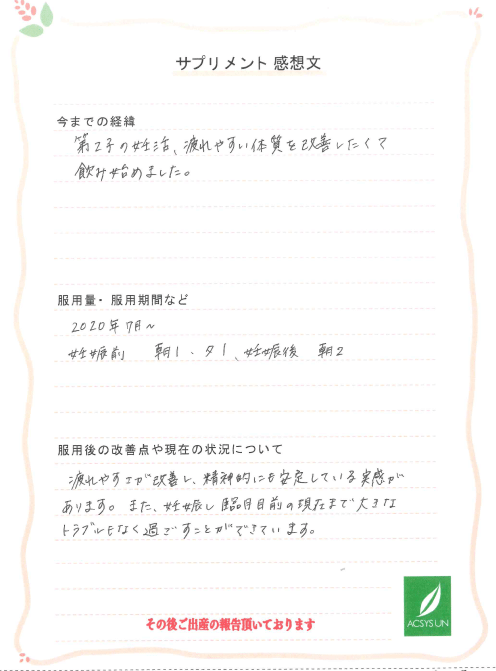 サプリメント 感想文
今までの経緯
第2子の妊活、疲れやすい体質を改善したくて
飲み始めました。
服用量・服用期間など
2020年7月〜
妊娠前 朝1・夕1、妊娠後 朝2
服用後の改善点や現在の状況について
疲れやすさが改善し、精神的にも安定している実感が
あります。また、妊娠し臨月目前の現在まで大きな
トラブルもなく過ごすことができています。
その後ご出産の報告頂いております
ACSYSUN